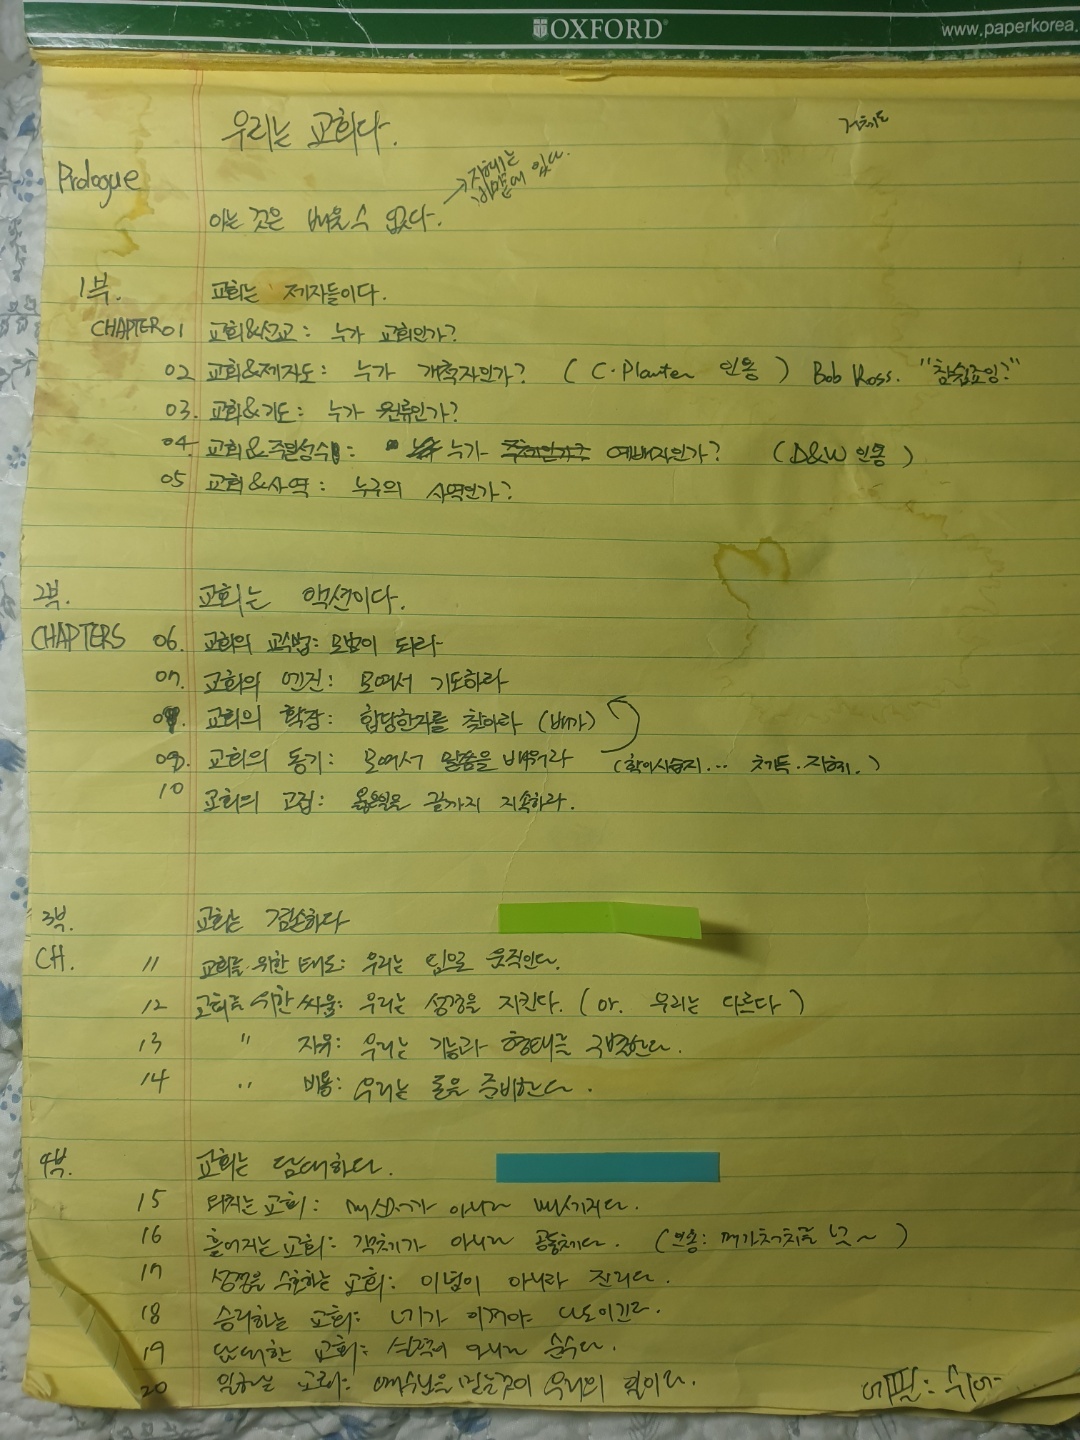 OXFORD
www.paperkorea.
우리는 교회다.
Prologue
아는 것은 배울 수 없다. → 지혜는 비밀에 있다.
1부. 교회는 제자들이다.
CHAPTER 01 교회&선교: 누가 교회인가?
02 교회&제자도: 누가 개척자인가? (C. Planter 인용) Bob Ross. "참쉽죠잉?"
03. 교회&기도: 누가 원류인가?
04. 교회&주일성수: 누가 예배자인가? (D&W 인용)
05 교회&사역: 누구의 사역인가?
2부. 교회는 액션이다.
CHAPTERS 06. 교회의 교수법: 모범이 되라
07. 교회의 엔진: 모여서 기도하라
교회의 확장: 합당한자를 찾아라 (배가)
교회의 동기: 모여서 말씀을 배워라 (학이시습지... 체득·지혜.)
10 교회의 고집: 옳은일을 끝까지 지속하라.
3부. 교회는 겸손하다
CH. 11 교회를 위한 태도: 우리는 믿음으로 움직인다.
12 교회를 위한 싸움: 우리는 성경을 지킨다. (or. 우리는 다르다)
13 " 자유: 우리는 기능과 형태를 구별한다.
14 " 비용: 우리는 돈을 준비한다.
4부. 교회는 담대하다.
15 교회: 아니라
16 흩어지는 교회: 객체가 아니라 공동체다. (인용:
17 성경을 수호하는 교회: 이념이 아니라 진리다.
18 승리하는 교회: 네가 이겨야 나도이긴다.
19 담대한 교회: 아니라 순수다.
20 일하는 교회: 예수님을 믿는것이 우리의 일이다.
에필: